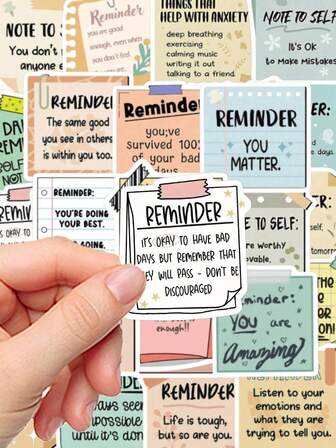 NOTE TO
You don't
anyone e
Reminder
you are good
enough, even when
you don't feel
THINGS THAT
HELP WITH ANXIETY
deep breathing
exercising
calming music
writing it out
talking to a friend
NOTE TO SELF
It's OK
to Make Mistakes
REMINDER
The same good
you see in others
is within you too.
Reminder
you;ve
survived 100%
of your bad
days
REMINDER
YOU
MATTER.
REMINDER:
YOU'RE DOING
YOUR BEST.
REMINDER
IT'S OKAY TO HAVE BAD
DAYS BUT REMEMBER THAT
EY WILL PASS - DON'T BE
DISCOURAGED
E TO SELF:
re worthy
ovable.
enough!!
minder:
YOU are
Amazing
ays seem
impossible
until it's don
REMINDER
Life is tough,
but so are you.
Listen to your
emotions and
what they are
trying to tell you.